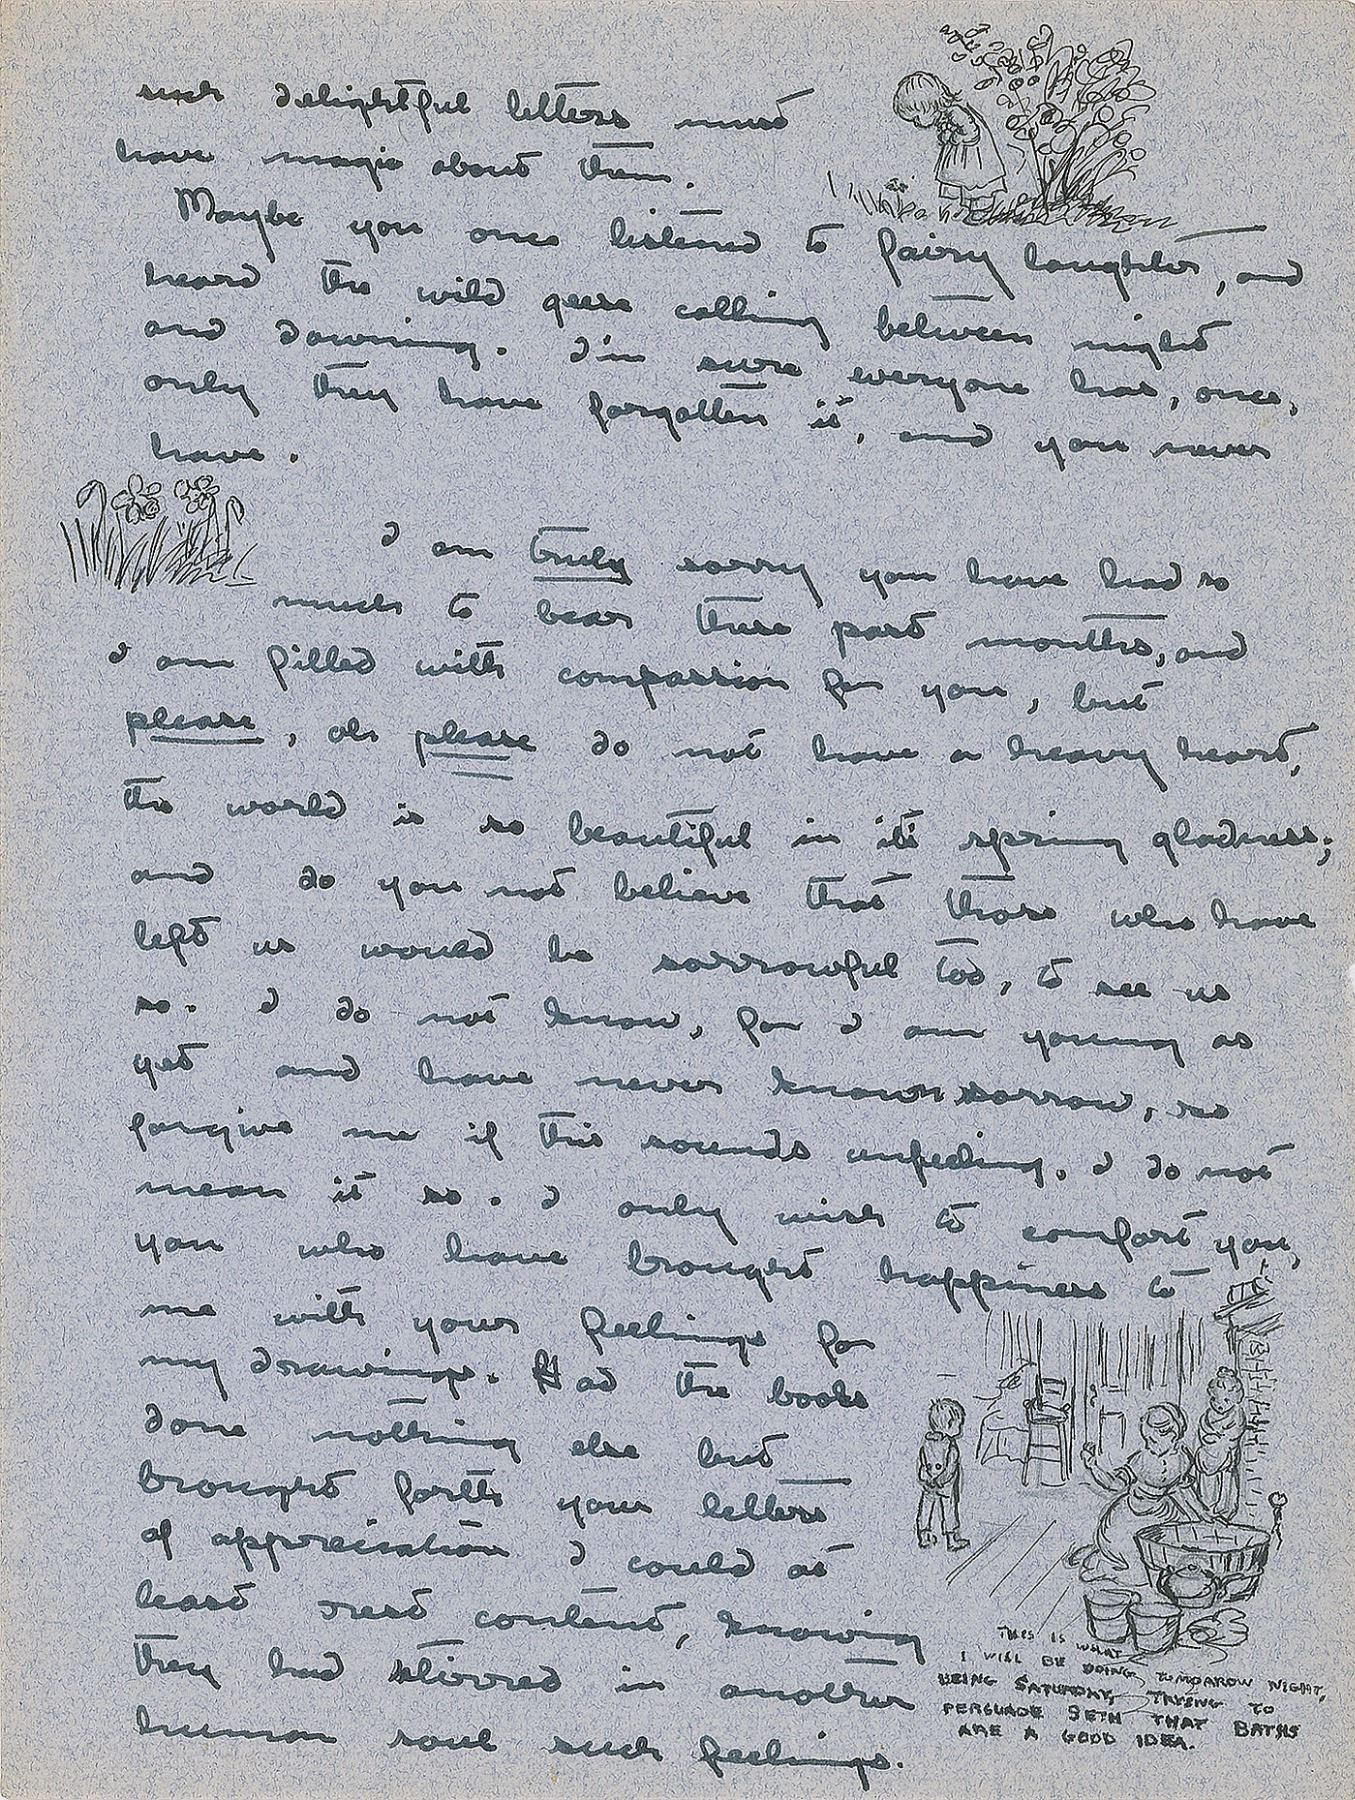 such delightful letters must
have magic about them.
Maybe you once listened to fairy laughter, and
heard the wild geese calling between night
and dawning. I'm sure everyone has, once,
only they have forgotten it, and you never
have.
I am truly sorry you have had so
much to bear these past months, and
I am filled with compassion for you, but
please, oh please do not have a heavy heart,
the world is so beautiful in its spring gladness;
and do you not believe that those who have
left us would be sorrowful too, to see us
so. I do not know, for I am young as
yet and have never known sorrow, so
forgive me if this sounds unfeeling. I do not
mean it so. I only wish to comfort you,
you who have brought happiness to
me with your feelings for
my drawings. Had the books
done nothing else but
brought forth your letters
of appreciation I could at
least rest content, knowing
they had stirred in another
human soul such feelings.
THIS IS WHAT
I WILL BE DOING TOMORROW NIGHT,
BEING SATURDAY, TRYING TO
PERSUADE SETH THAT BATHS
ARE A GOOD IDEA.